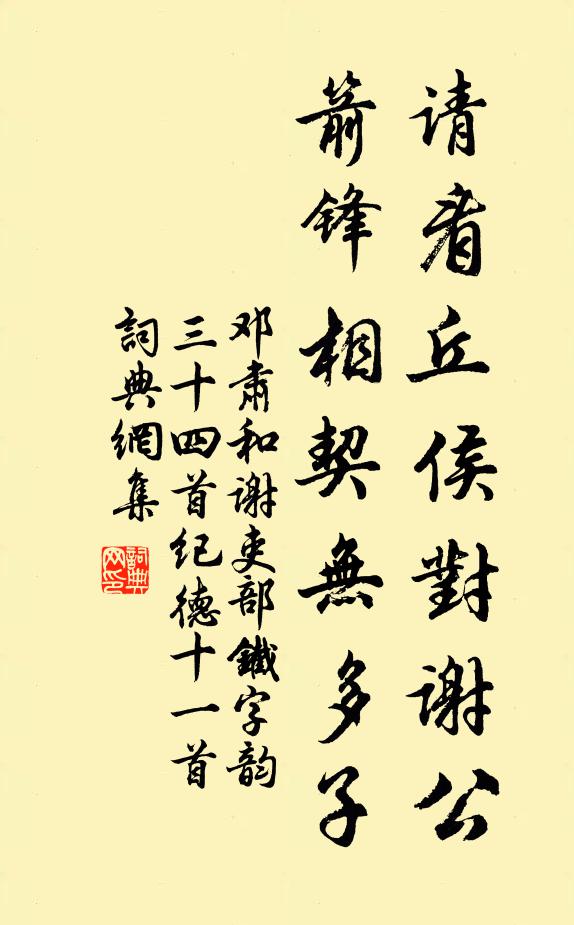 请看丘侯對谢公
箭锋相契無多子
邓肃和谢吏部鐵字韵
三十四首纪德十一首
詞典網集
詞典
网印